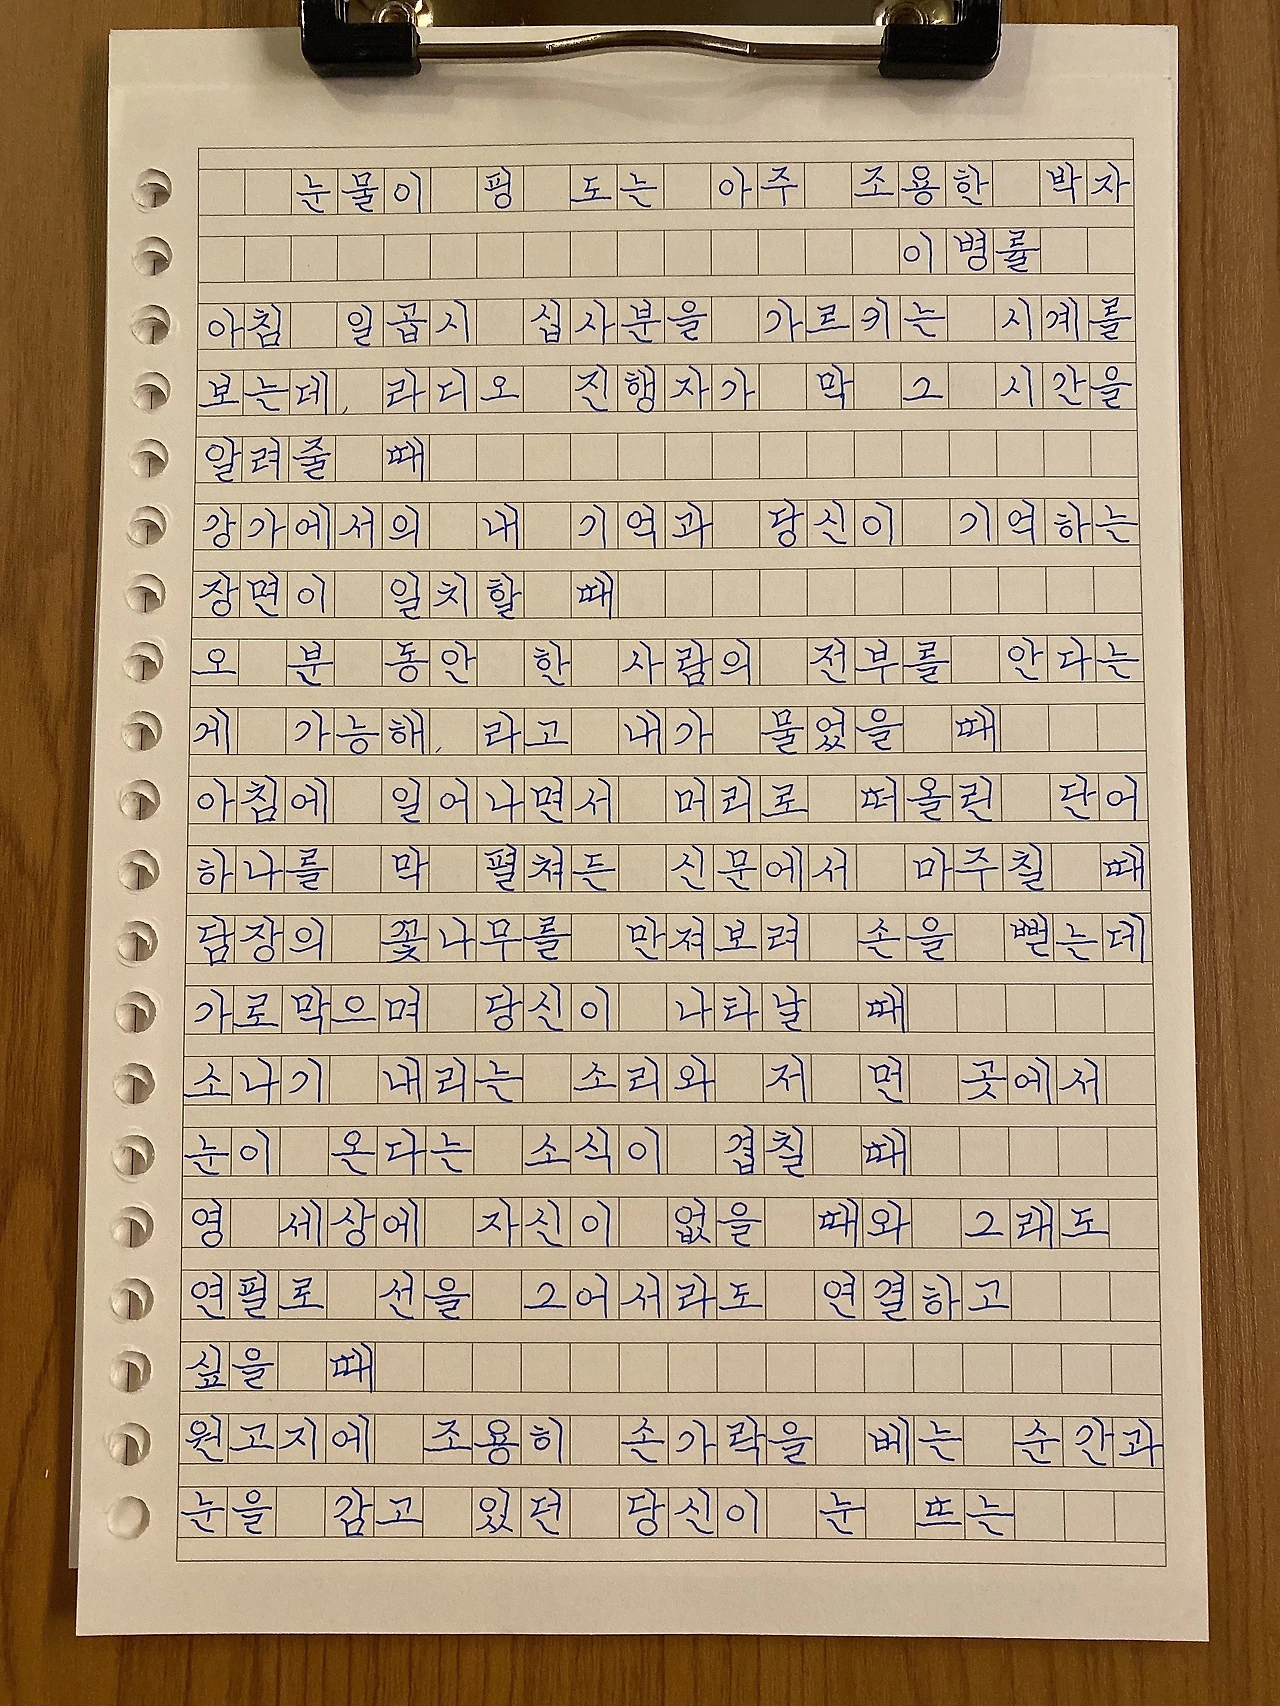 눈물이 핑 도는 아주 조용한 박자
이병률
아침 일곱시 십사분을 가르키는 시계를
보는데, 라디오 진행자가 막 그 시간을
알려줄 때
강가에서의 내 기억과 당신이 기억하는
장면이 일치할 때
오 분 동안 한 사람의 전부를 안다는
게 가능해, 라고 내가 물었을 때
아침에 일어나면서 머리로 떠올린 단어
하나를 막 펼쳐든 신문에서 마주칠 때
담장의 꽃나무를 만져보려 손을 뻗는데
가로막으며 당신이 나타날 때
소나기 내리는 소리와 저 먼 곳에서
눈이 온다는 소식이 겹칠 때
영 세상에 자신이 없을 때와 그래도
연필로 선을 그어서라도 연결하고
싶을 때
원고지에 조용히 손가락을 베는 순간과
눈을 감고 있던 당신이 눈 뜨는